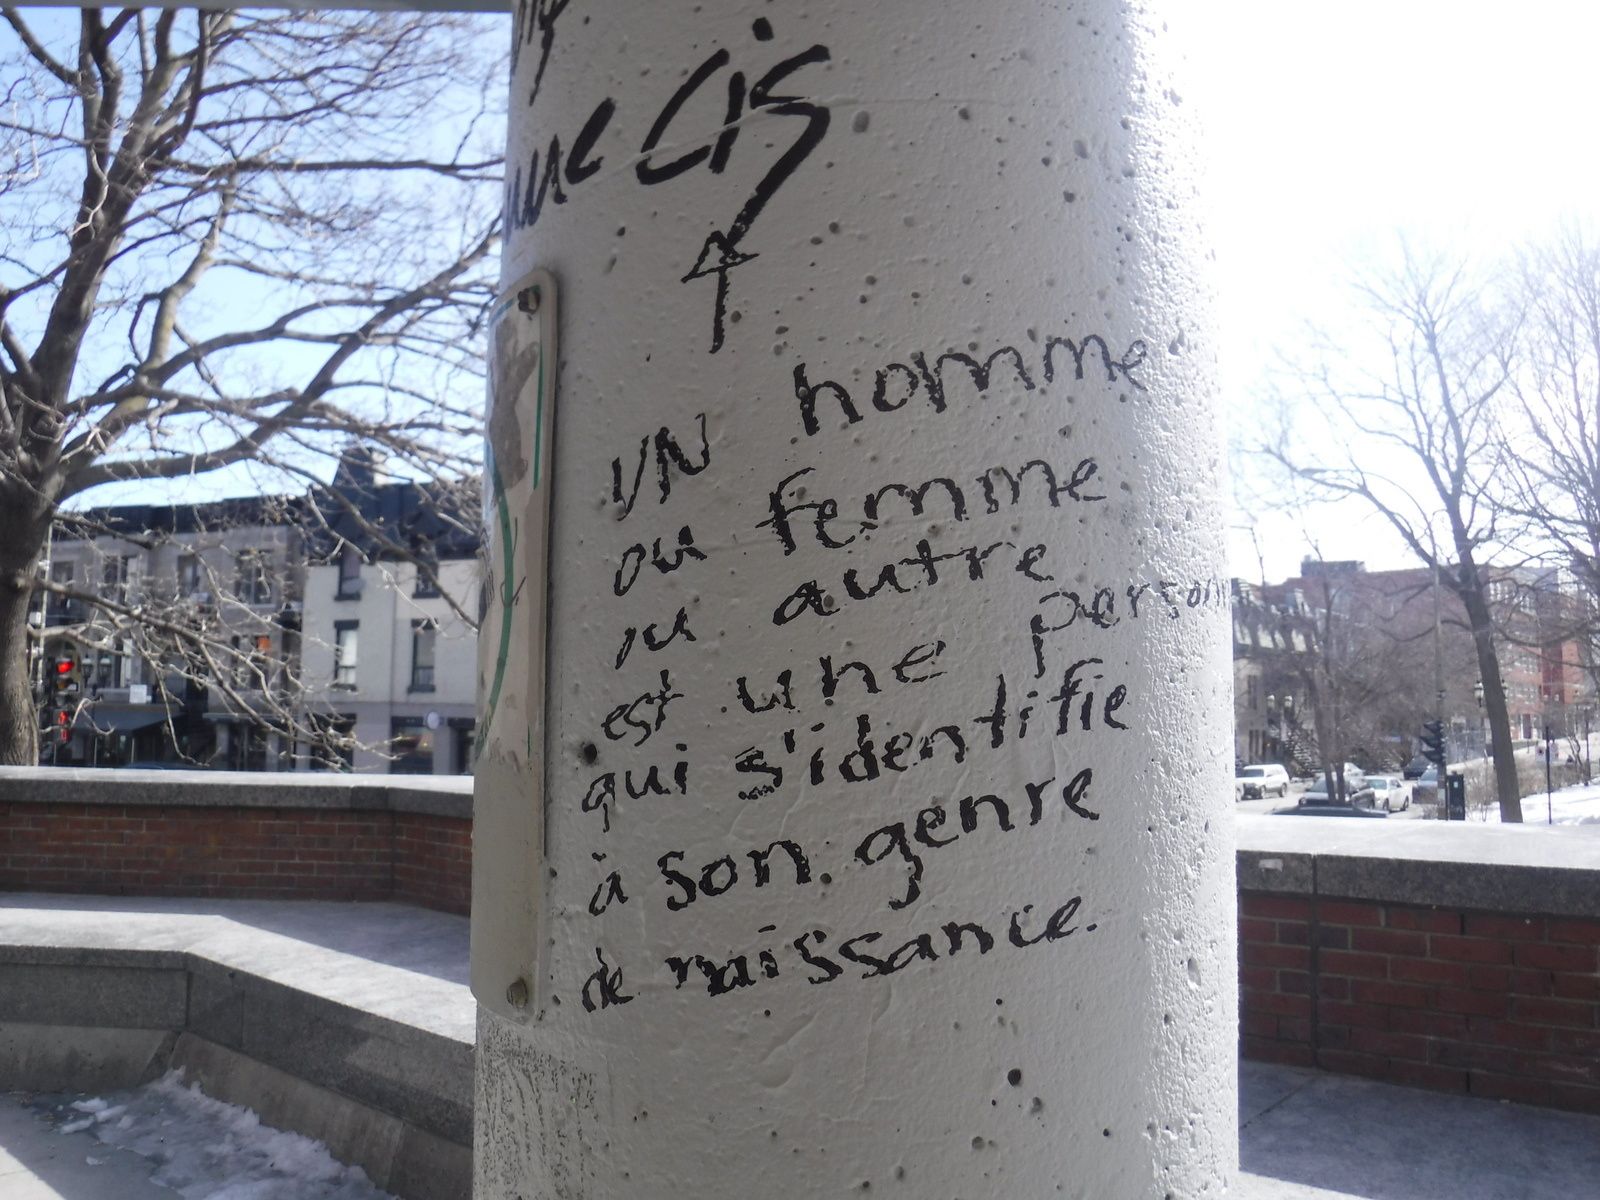 cis
UN homme
ou femme
ou autre
est une person
qui s'identifie
à son genre
de naissance.